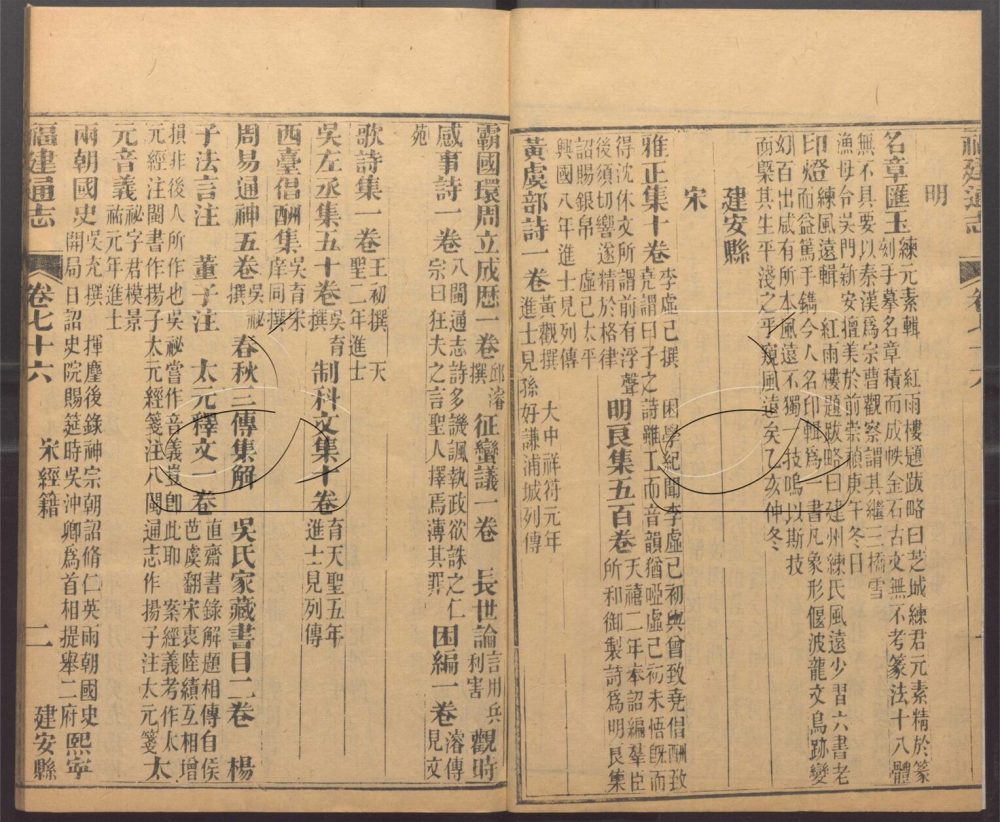 福建通志
明
名章匯玉 練元素輯 紅雨樓題跋略曰芝城練君元素精於篆
刻手摹名章積而成帙金石古文無不考篆法十八體
無不具要以秦漢爲宗曹觀察謂其繼三橋雪
漁毋合吳門新安擅美於前崇禎庚午冬日
印燈 練風遠輯 紅雨樓題跋略曰建州練氏風遠少習六書老
而益篤手鐫今人名印輯爲一書凡象形偃波龍文鳥跡變
幻百出咸有所本風遠不獨一技鳴以斯技
而槩其生平淺之乎窺風遠矣乙亥仲冬
建安縣
宋
雅正集十卷 李虛己撰 困學紀聞李虛己初與曾致堯倡酬致
堯謂曰子之詩雖工而音韻猶啞虛己初未悟旣而
得沈休文所謂前有浮聲
後須切響遂精於格律 明良集五百卷 天禧二年奉詔編羣臣
所和御製詩爲明良集
詔賜銀帛 虛己太平
興國八年進士見列傳
黃虞部詩一卷 黃觀撰 大中祥符元年
進士見孫好謙浦城列傳
霸國環周立成歷一卷 邱濬
撰 征蠻議一卷 長世論 言用兵
利害 觀時
感事詩一卷 八閩通志詩多譏諷執政欲誅之仁
宗曰狂夫之言聖人擇焉薄其罪 困編一卷 濬傳
見文
苑
歌詩集一卷 王初撰 天
聖二年進士
吳左丞集五十卷 吳育
撰 制科文集十卷 育天聖五年
進士見列傳
西臺倡酬集 吳育宋
庠同撰
周易通神五卷 吳祕
撰 春秋三傳集解 吳氏家藏書目二卷 楊
子法言注 董子注 太元釋文一卷 直齋書錄解題相傳自侯
芭虞翻宋衷陸績互相增
損非後人所作也吳祕嘗作音義豈卽此耶 案經義考作太
元經注閩書作揚子太元經箋注八閩通志作揚子注太元箋 太
元音義 祕字君模景
祐元年進士
兩朝國史 吳充撰 揮麈後錄神宗朝詔脩仁英兩朝國史
開局日詔史院賜筵時吳沖卿爲首相提舉二府 熙寧
福建通志 卷七十六 宋經籍 二 建安縣